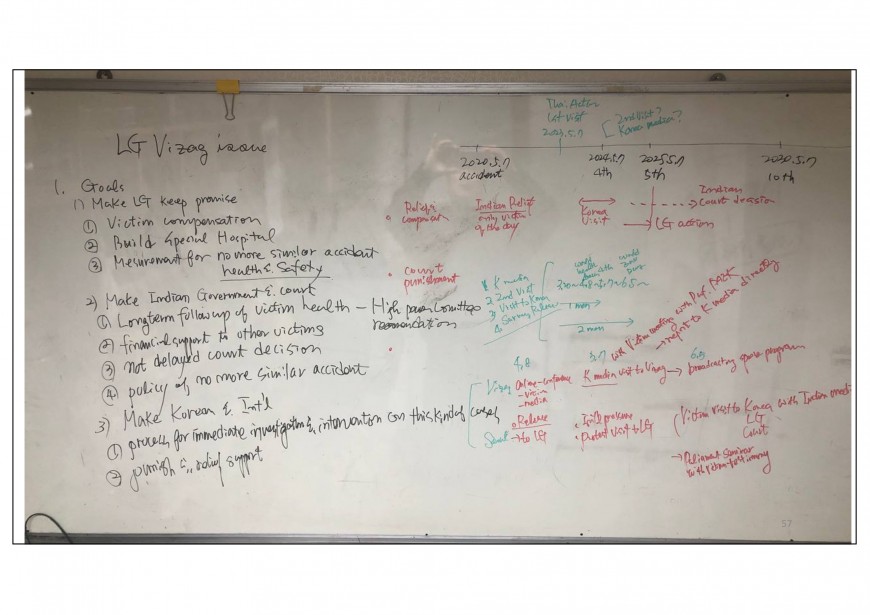 LG Vizag issue
1. Goals
1) Make LG keep promise
① Victim compensation
② Build Special Hospital
③ Mesurement for no more similar accident
health & Safety
2) Make Indian Government & court
① Longterm follow up of victim health – High power Committee
② financial support to other victims
③ not delayed court decision
④ policy of no more similar accident
3) Make Korean & Int'l
① process for immediate investigation & intervention on this kind of cases
② punish & relief support
1st Visit
2023.5.7
2nd Visit?
Korea media?
2020.5.7
accident
2024.5.7
4th
2025.5.7
5th
2030.5.7
10th
Indian Relief
only victim
of the day
Korea
Visit
Indian
court decision
LG action
• court
punishment
1 K media
2 2nd Visit
3 Visit to Korea
4
1 mon
2 mon
with Victim meeting with Prof. PAEK
→ report to K media directly
4,8
5.7
6.5
Vizag online-conference
- victim
- media
K media visit to Vizag → broadcasting program
• Release
Seoul → to LG
• protest visit to LG
Victim visit to Korea with Indian
LG
Court
→ Parliament Seminar
57